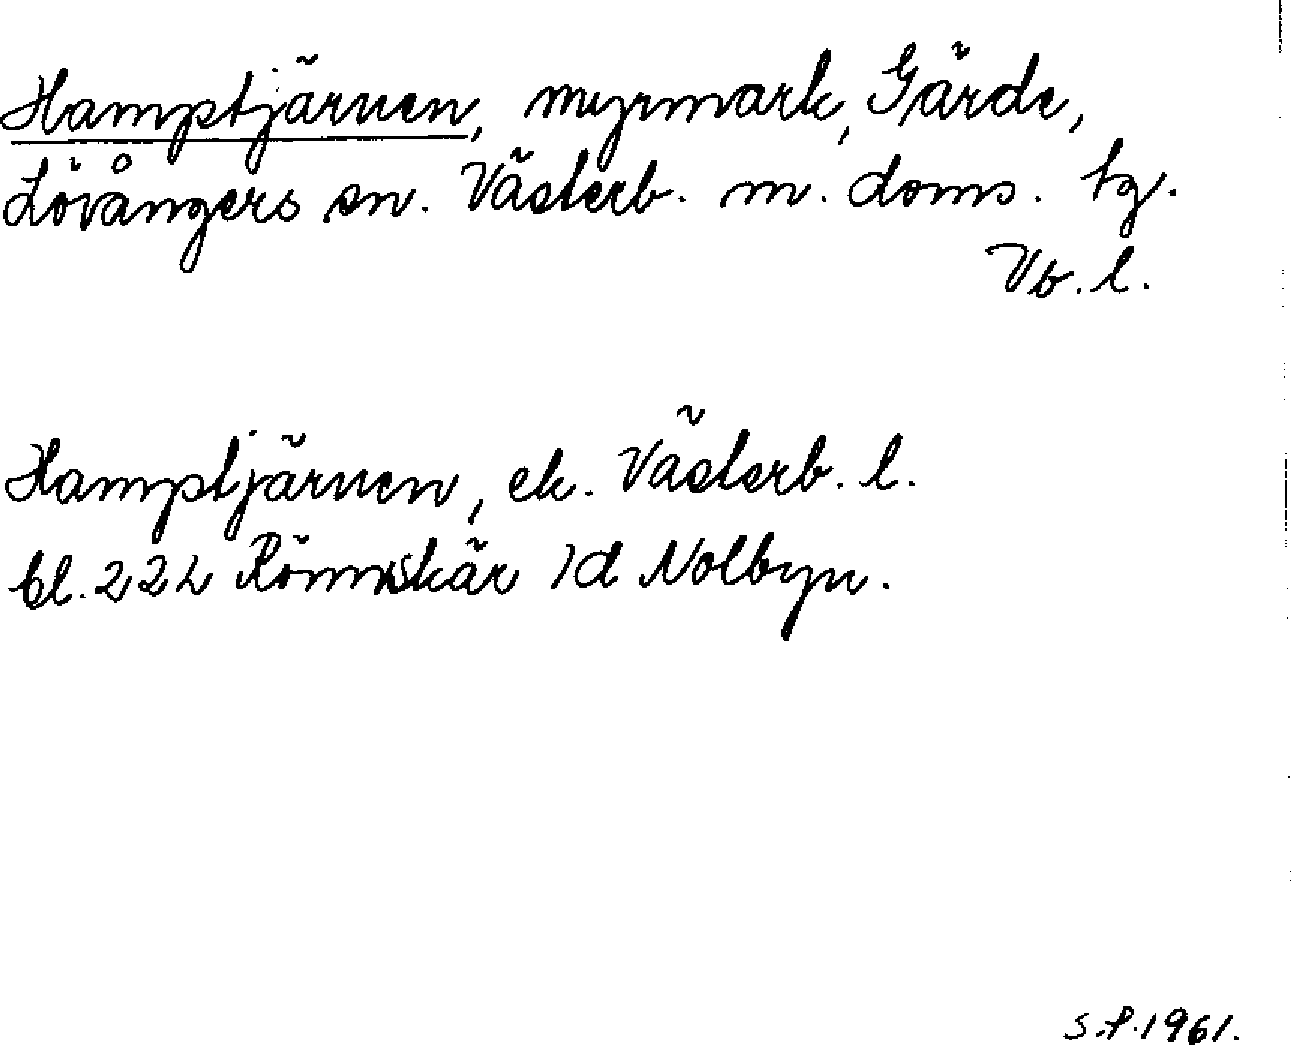 Hamptjärnen, myrmark, Gärde,
Lövångers sn. Västerb. m. doms. tg.
Vb. l.
Hamptjärnen, ek. Västerb. l.
bl. 222 Rönnskär 1d Nolbyn.
S.P.1961.